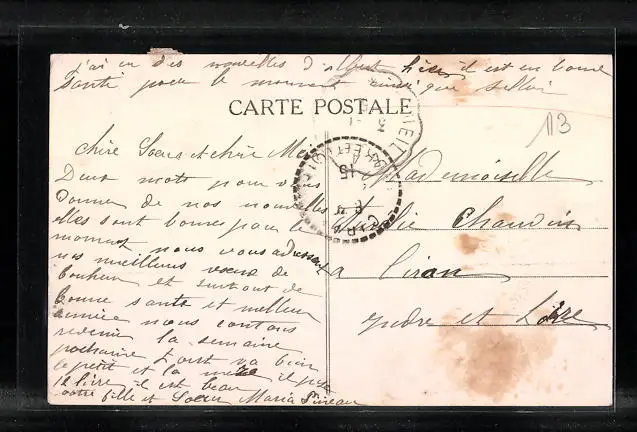 j'ai eu des nouvelles d'albert hier il est en bonne
santé pour le moment ainsi que
CARTE POSTALE
113
chère Soeur et chère
Deux mots pour vous
Donner de nos nouvelles
elles sont bonnes pour le
moment nous vous adressont
nos meilleurs voeux de
bonheur et surtout de
bonne santé et meilleur
année nous contons
revenir la semaine
prochaine tout va bien
le petit et la mère il pèse
12 livre il est beau
votre fille et Soeur Maria Pineau
Mademoiselle
Chauvin
a Ciran
yndre et Loire
CIRAN
INDRE-ET-LOIRE
15